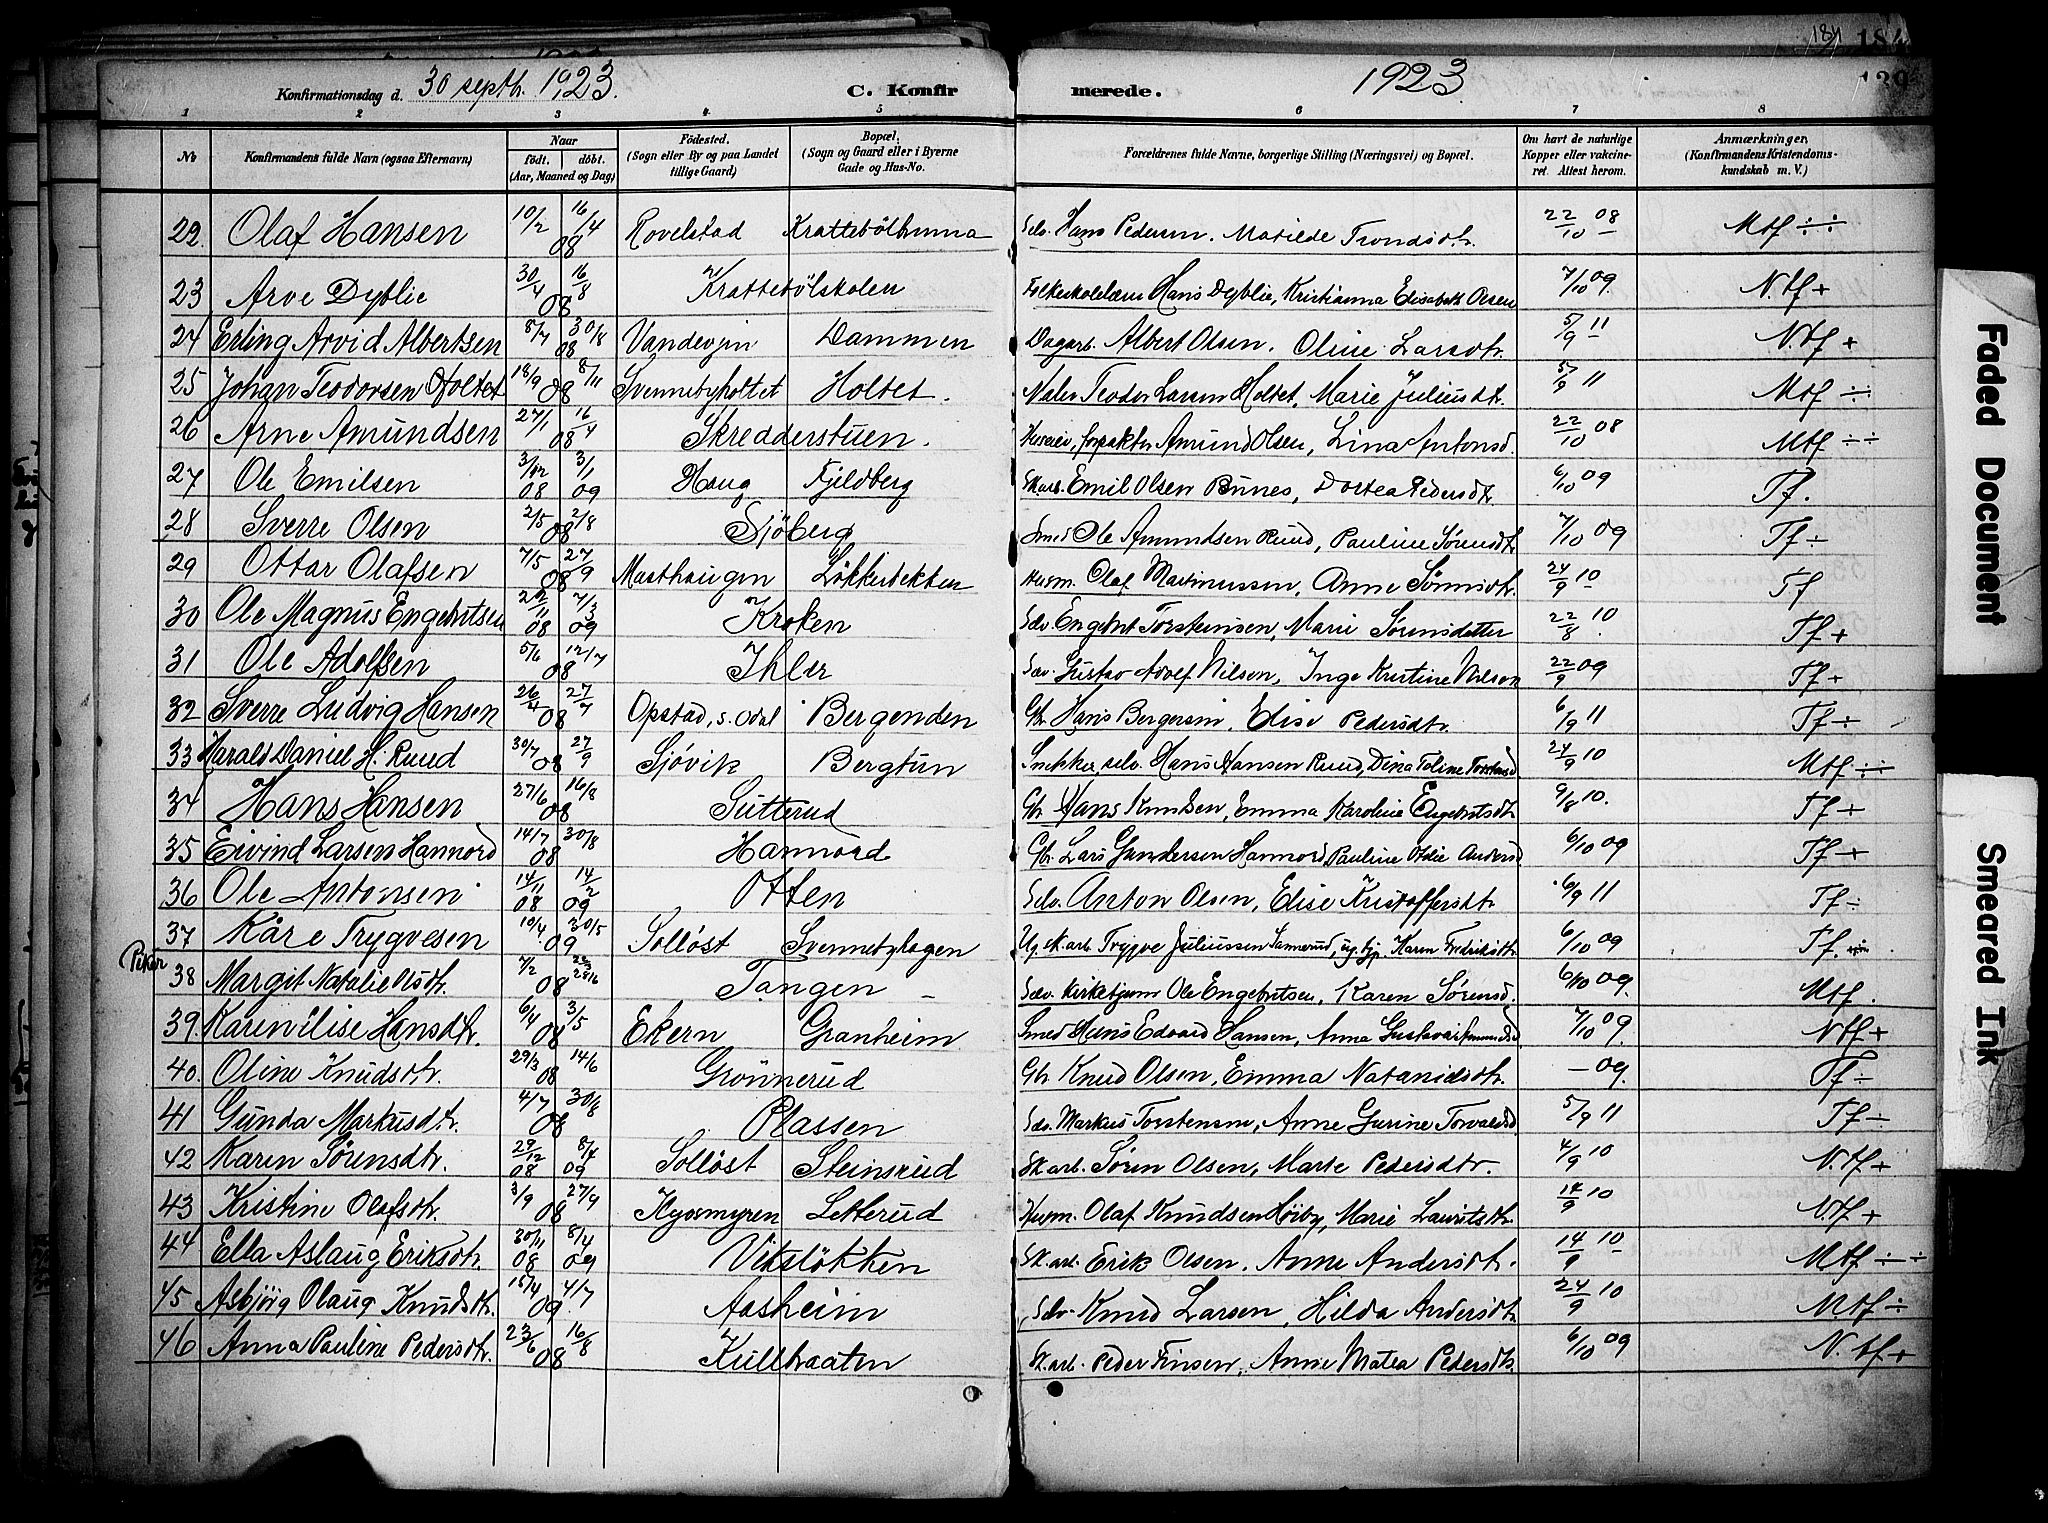 184 184
Konfirmationsdag d. 30 septb. 1923. C. Konfirmerede. 1923 139
1 2 3 4 5 6 7 8
No Konfirmandens fulde Navn (ogsaa Efternavn) Naar født. døbt. (Aar, Maaned og Dag) Födested. (Sogn eller By og paa Landet tillige Gaard) Bopæl. (Sogn og Gaard eller i Byerne Gade og Hus-No. Forældrenes fulde Navne, borgerlige Stilling (Næringsvei) og Bopæl. Om havt de naturlige Kopper eller vakcineret. Attest herom. Anmærkninger. (Konfirmandens Kristendomskundskab m. V.)
22. Olaf Hansen 10/2 16/4 08 Rovelstad Selv. Hans Pedersen. Matilde Trondsdtr. 22/10 08 Mtf ÷÷
23 Arve Dyblie 30/4 16/8 08 Krattebölskolen Hans Dyblie, Kristianna Elisabeth Olsen 7/10 09. N.tf +
24 Erling Arvid Albertsen 8/7 30/8 08 Dammen Dagarb. Albert Olsen. Oline Larsdtr. 5/9 11 N.tf +
25 Johan Teodorsen Holtet 18/9 8/11 08 Svennebyholtet Holtet. Teodor Larsen Holtet, Marie Juliusdtr. 5/9 11 Mtf ÷
26 Arne Amundsen 27/1 16/4 08 Skredderstuen. forpakter Amund Olsen, Lina Antonsd. 22/10 08 Mtf ÷÷
27 Ole Emilsen 3/12 08 3/1 09 Haug Fjeldberg Skarb. Emil Olsen Bunes, Dortea Pedersdtr 6/10 09 Tf.
28 Sverre Olsen 2/5 2/8 08 Sjöberg Smed Ole Amundsen Ruud, Pauline Sørensdtr 7/10 09 Tf÷
29 Ottar Olafsen 7/5 27/9 08 Masthaugen Løkkerbekken Husm. Olaf Martinussen, Anne 24/9 10 Tf
30 Ole Magnus Engebretsen 08 7/3 09 Kroken Selv. Engebret Torsteinsen, Marie Sørensdatter 22/8 10 Tf +
31 Ole Adolfsen 5/6 12/7 08 Ihler Selv. Gustav Adolf Nilsen, Inga Kristine Nilson 22/9 09 Tf +
32 Sverre Ludvig Hansen 26/4 27/7 08 Opstad, s. Odal Bergenden Gbr. Hans Bergersen, Elise Pedersdtr. 6/9 11 Tf ÷
33 Harald Daniel H. Ruud 30/7 27/9 08 Sjøvik Bergtun Snekker, selv. Hans Hansen Ruud, Dina Toline 24/9 10 Mtf ÷÷
34 Hans Hansen 27/6 16/8 08 Sutterud Gbr Hans Knudsen, Emma Karoline Engebretsdtr 9/8 10. Tf +
35 Eivind Larsen Hannord 14/7 30/8 08 Hannord Gbr. Lars Gundersen Hannord, Pauline Otelie Andersd 6/10 09 Tf +
36 Ole Antonsen 14/11 08 14/2 09 Otten Selv. Anton Olsen, Elise Kristoffersdtr 6/9 11 Tf ÷
37 Kåre Trygvesen 10/4. 30/5 09 Solløst Svennebyhagen Ug. sk. arb. Trygve Juliussen Sannerud, ug. tjp. Karen Fredriksdtr 6/10 09 Tf.
Piker
38 Margit Natalie Olsdtr. 7/2 08 Tangen Selv. kirketjener Ole Engebretsen, Karen Sørensd. 6/10 09. Mtf.
39. Karen Elise Hansdtr. 6/4 3/5 08 Ekern Granheim Smed Hans Edvard Hansen, Anna Gustava 7/10 09. Ntf +
40. Oline Knudsdtr. 29/3 14/6 08 Grønnerud Gbr Knud Olsen, Emma Natanielsdtr. – 09. Tf ÷
41 Gunda Markusdtr. 4/7 30/8 08 Plassen Selv. Markus Torstensen, Anne Gurine Torvaldsd. 5/9 11 Tf ÷
42 Karen Sørensdtr. 29/12 08 8/4 09 Solløst Steinsrud Sk arb. Sören Olsen, Marte Pedersdtr. 4/9 10 N.tf +
43 Kristine Olafsdtr. 3/9 27/9 08 Kyosmyren Letterud Husm. Olaf Knudsen Høiby, Marie Lauritsdtr. 14/9 10 N.tf +
44 Ella Aslaug Eriksdtr. 30/11 08 8/4 09 Vikslökken Sk. arb. Erik Olsen. Anne Andersdtr. 14/9 10 Mtf ÷ ÷
45 Asbjörg Olaug Knudsdtr. 15/4 4/7 09. Aasheim Selv. Knud Larsen, Hilda Andersdtr. 24/9 10 M.tf ÷
46 Anna Pauline Pedersdtr. 23/6 16/8 08 Kullbraaten Sk. arb. Peder Finsen. Anne Matea Pedersdtr. 6/10 09 N.tf +
Faded Document
Smeared Ink